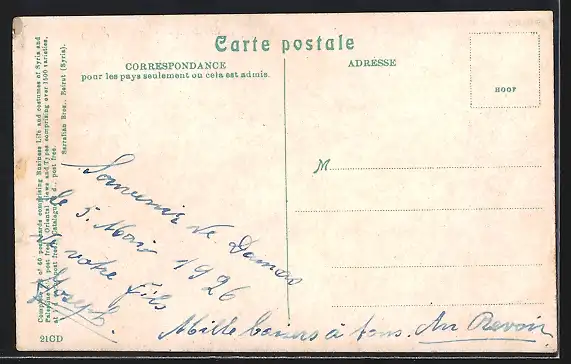 Carte postale
CORRESPONDANCE
pour les pays seulement ou cela est admis.
ADRESSE
BOOF
M
Complete set of 60 postcards comprising Business Life and costumes of Syria and
Palestine post free. Oriental Views and Types comprising over 1500 varieties,
post free. Catalogue post free.
Sarrafian Bros., Beirut (Syria).
Souvenir de Damas
le 5. Mars 1926
votre fils
Joseph
Mille baisers à tous. Au Revoir.
21CD